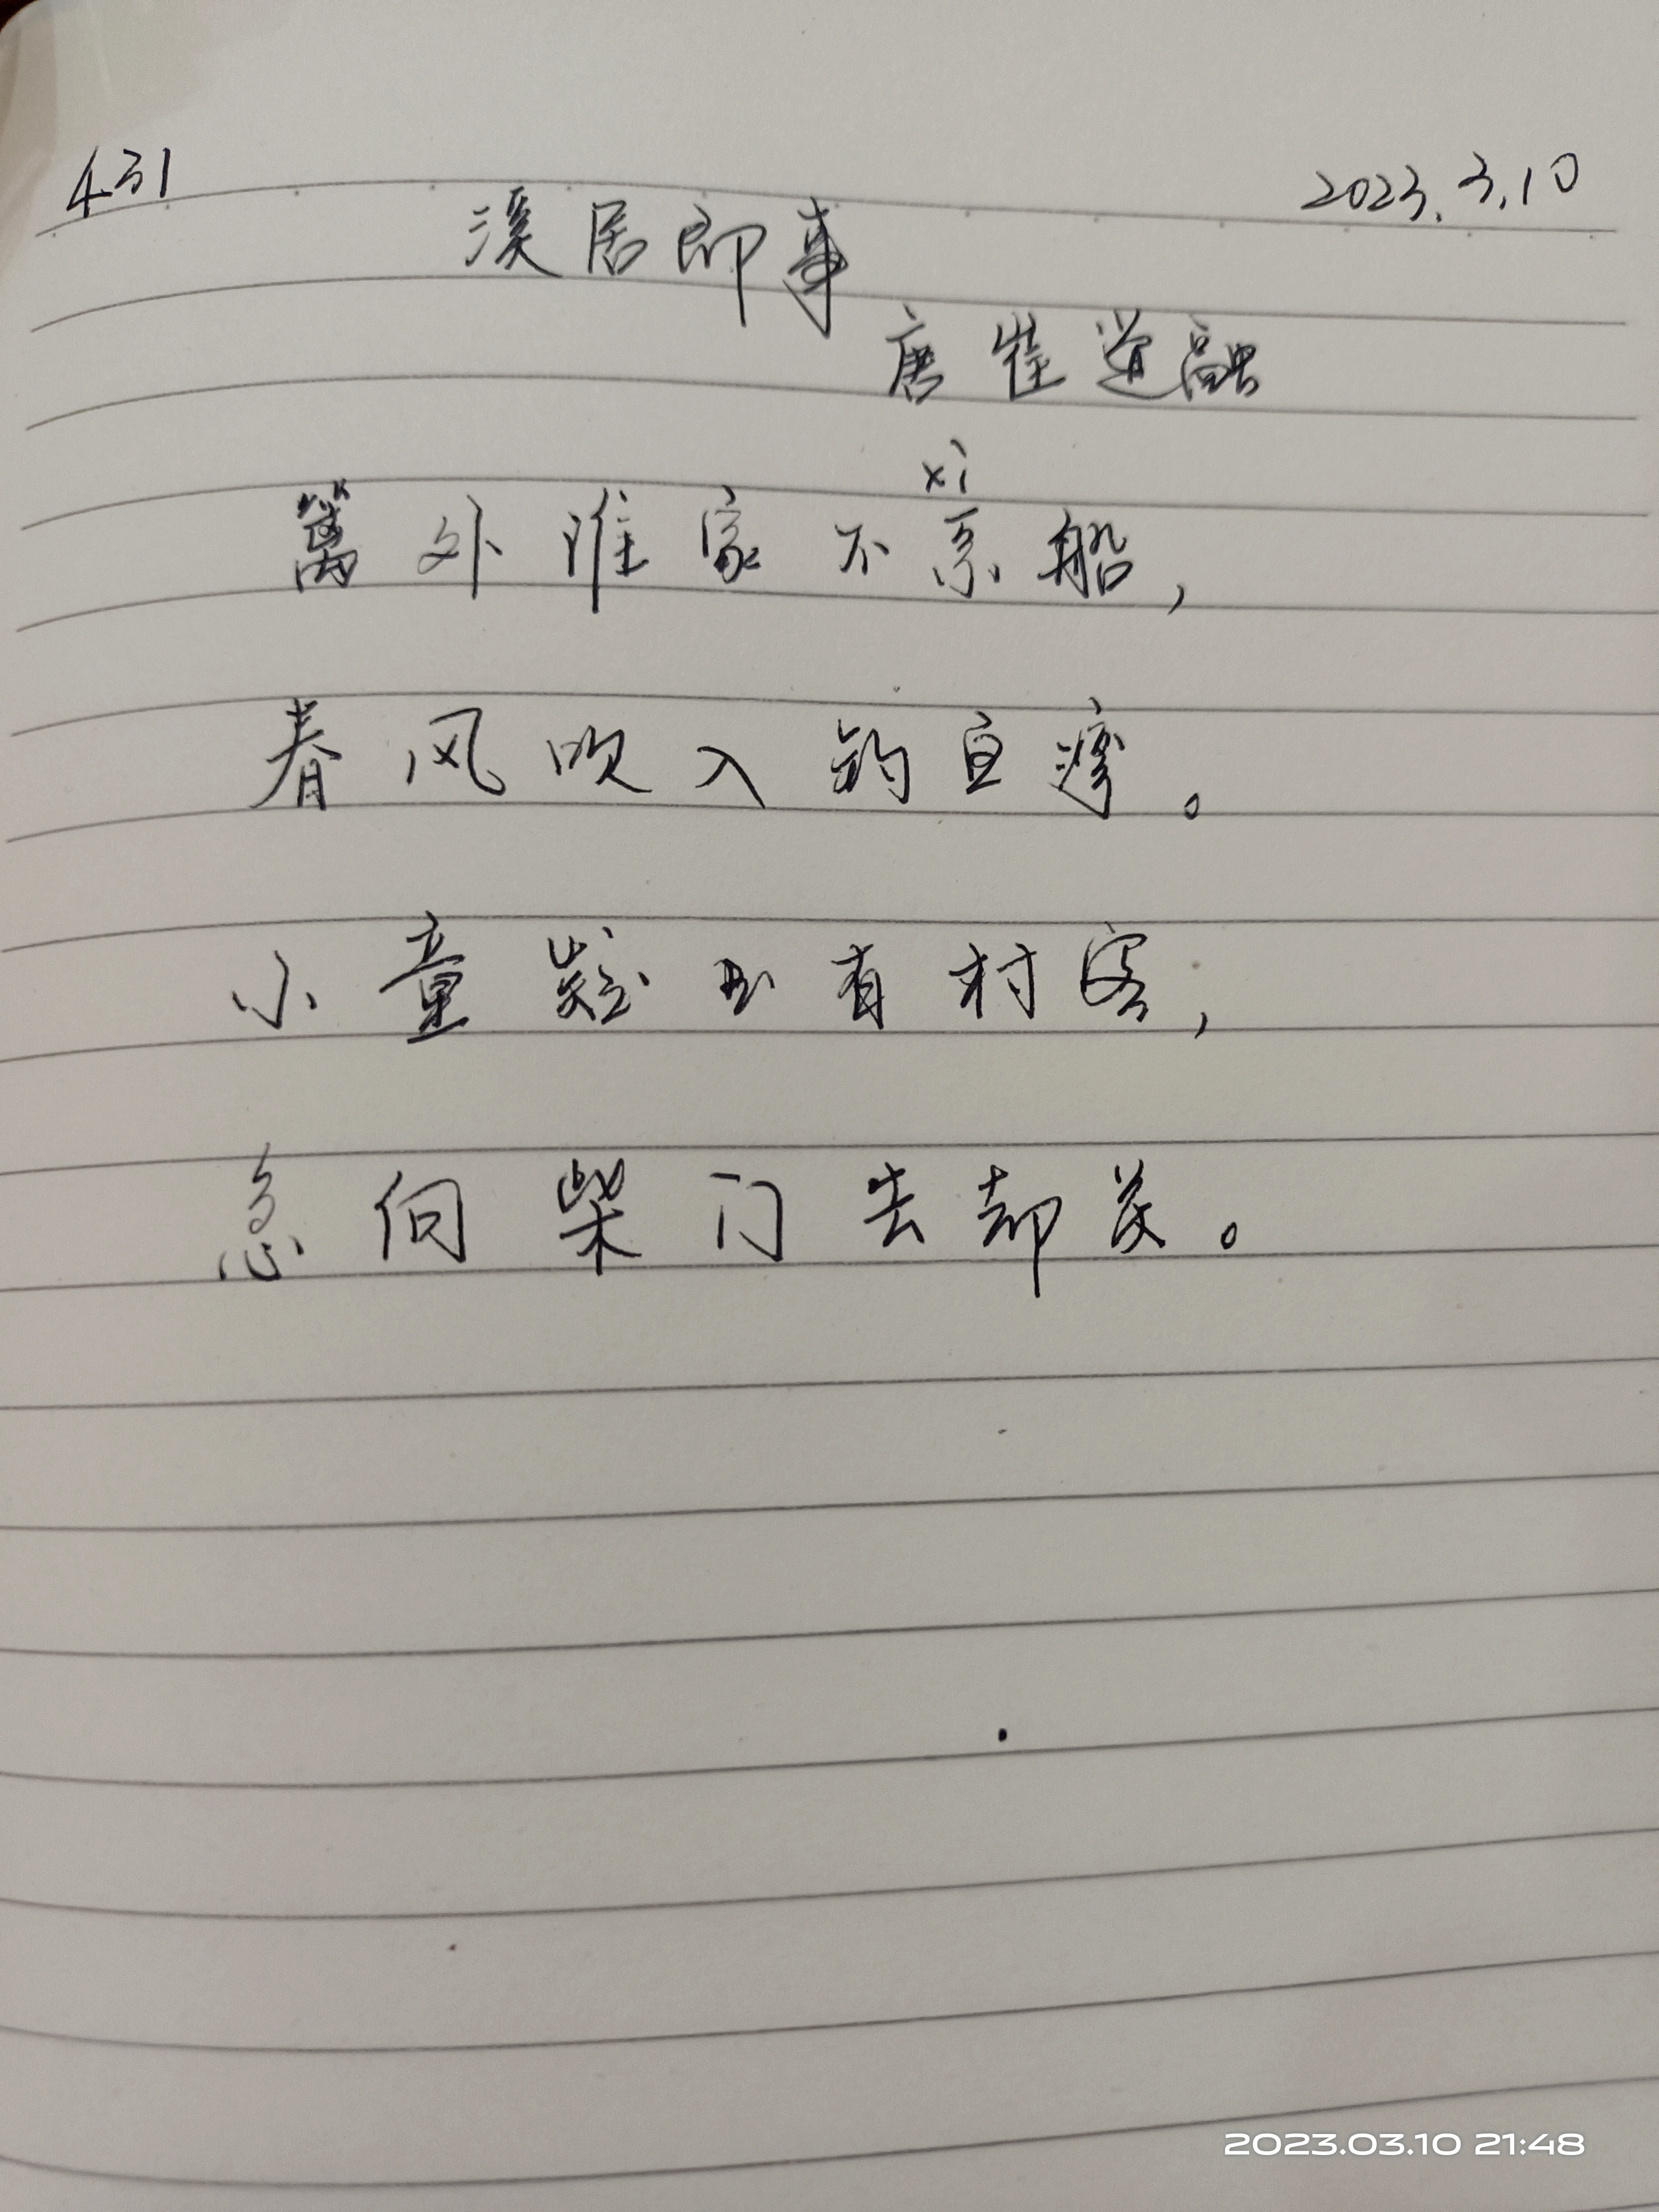 431 2023.3.10
溪居即事
唐 崔道融
xì
篱外谁家不系船，
春风吹入钓鱼湾。
小童疑是有村客，
急向柴门去却关。
2023.03.10 21:48